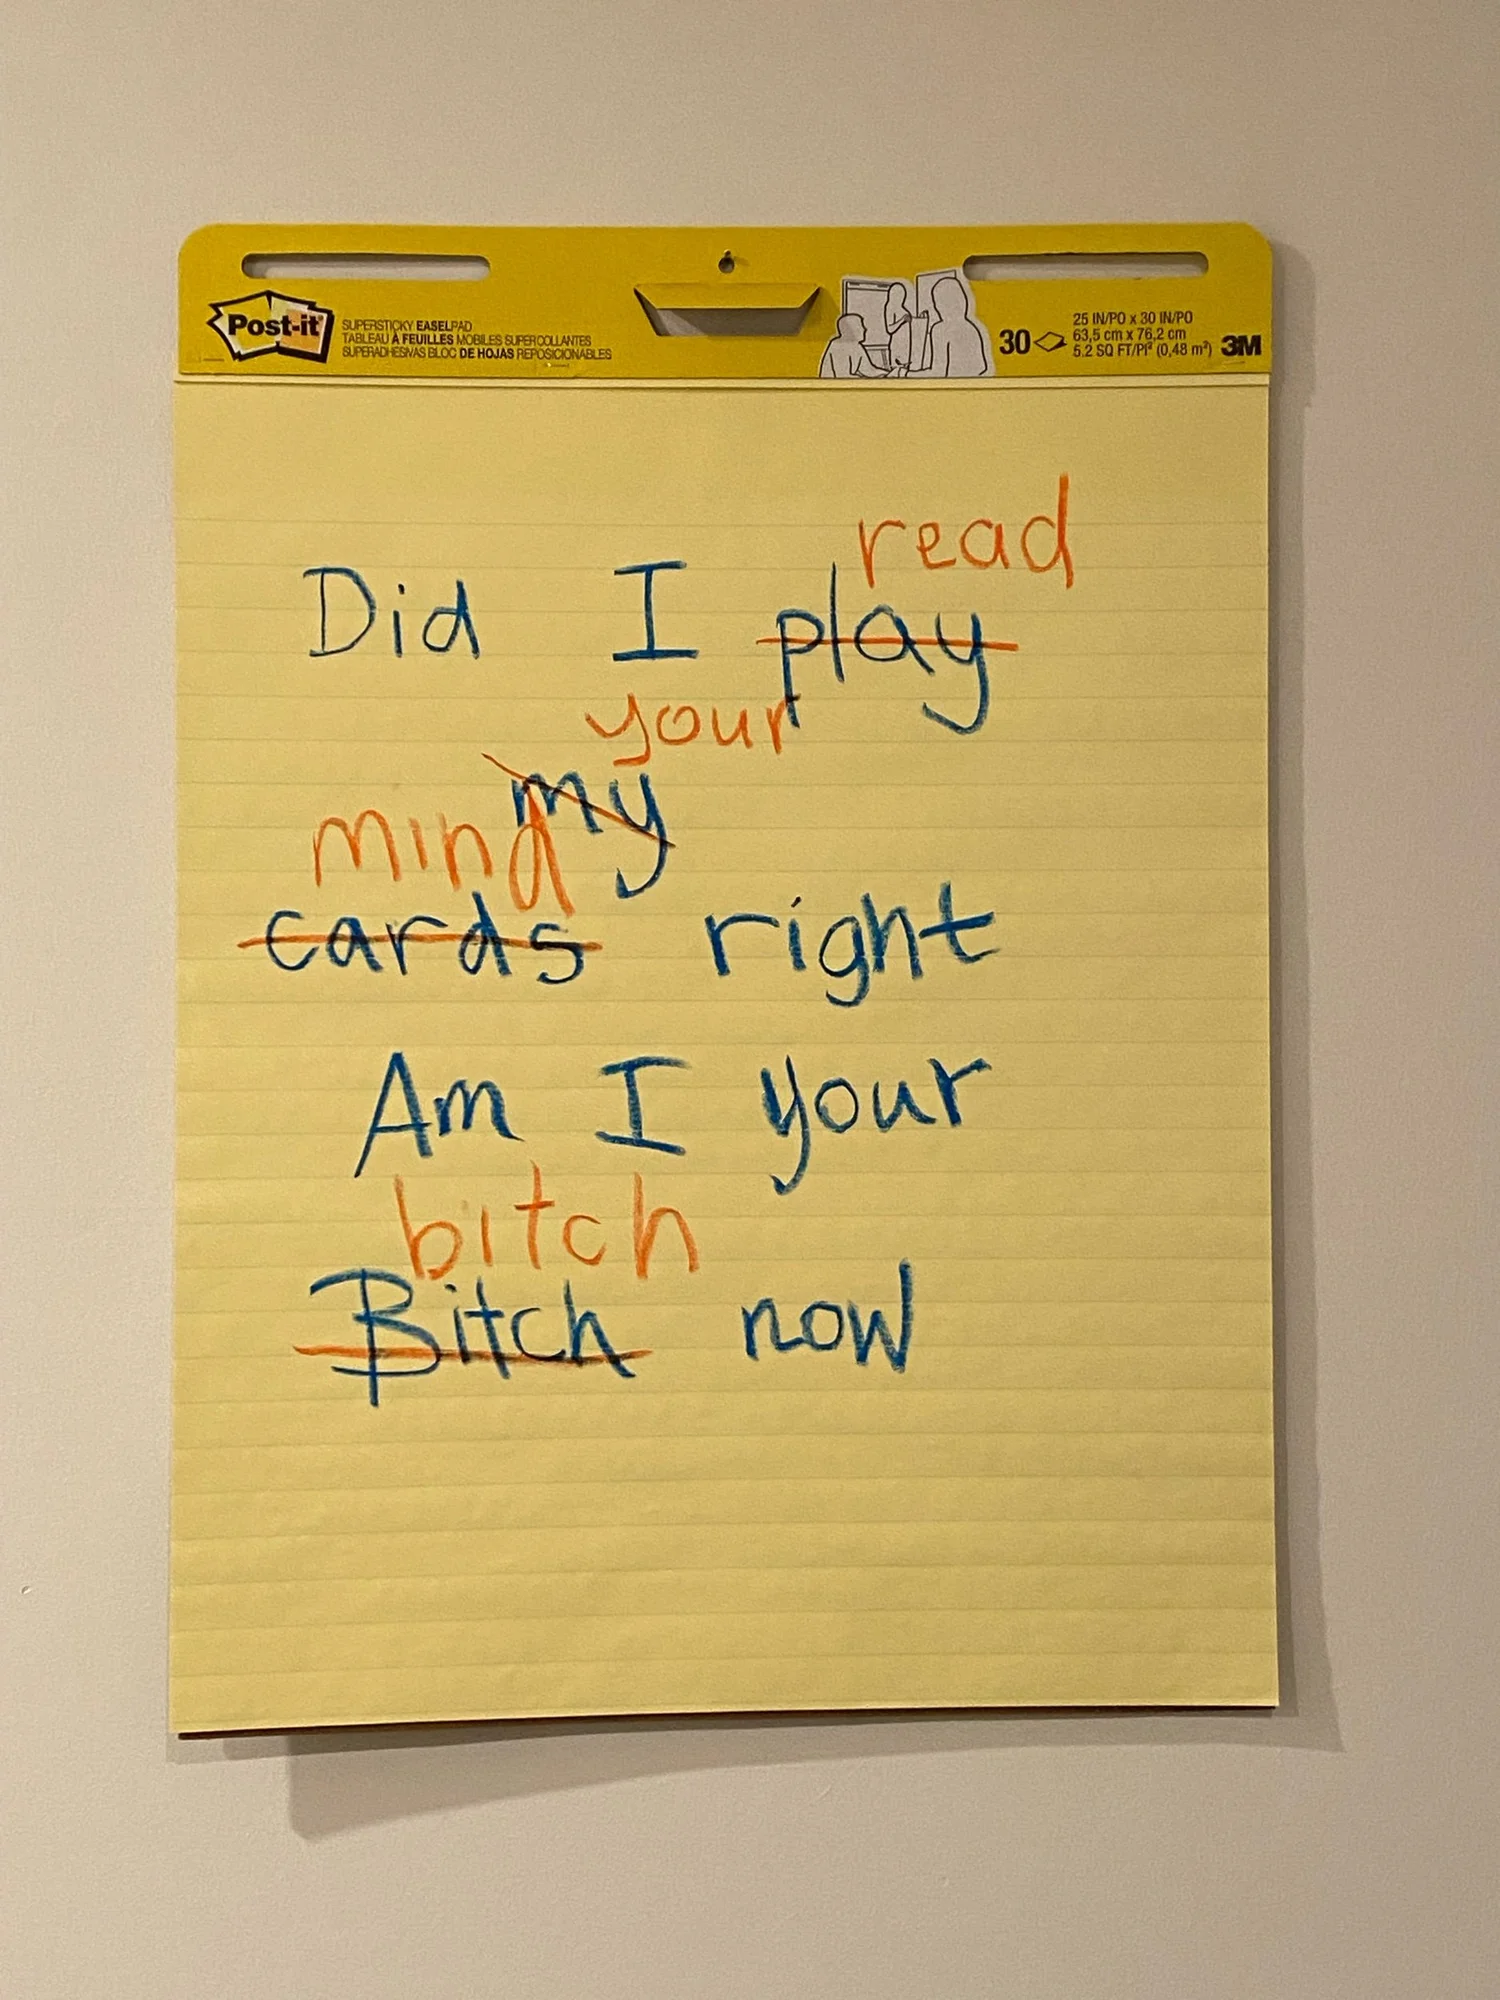 Post-it
SUPERSTICKY EASELPAD
TABLEAU À FEUILLES MOBILES SUPER COLLANTES
SUPERADHESIVAS BLOC DE HOJAS REPOSICIONABLES
30
25 IN/PO x 30 IN/PO
63,5 cm x 76,2 cm
5.2 SQ FT/PI² (0,48 m²)
3M
read
Did I play
your
my
mind
cards right
Am I your
bitch
Bitch now